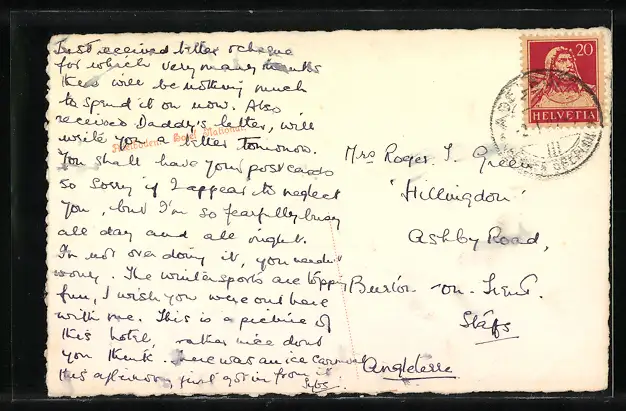 Just received letter & cheque
for which very many thanks
there will be nothing much
to spend it on now. Also
received Daddy's letter, will
write you a letter tomorrow.
You shall have your postcards
so sorry if I appear to neglect
you, but I'm so fearfully busy
all day and all night.
I'm not over doing it, you needn't
worry. The wintersports are topping
fun, I wish you were out here
with me. This is a picture of
this hotel, rather nice dont
you think. There was an ice carnival
this afternoon, just got in from it
National
Mrs Roger T. Green
'Hillingdon'
Ashby Road,
Burton-on-Trent.
Staffs
Angleterre
20
HELVETIA
III